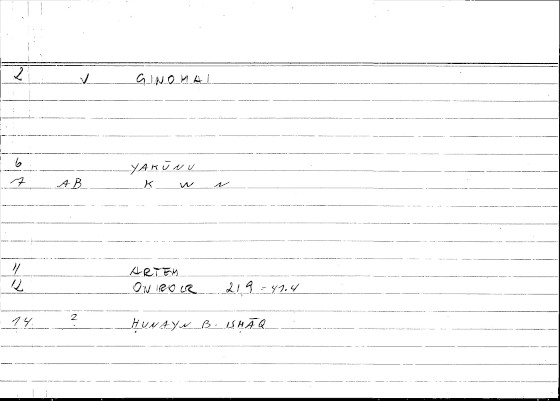 2 V GINOMAI
6 YAKŪNU
7 AB K W N
11 ARTEM
12 ONIROCR 219 = 47.4
14 2 ḤUNAYN B. ISḤĀQ